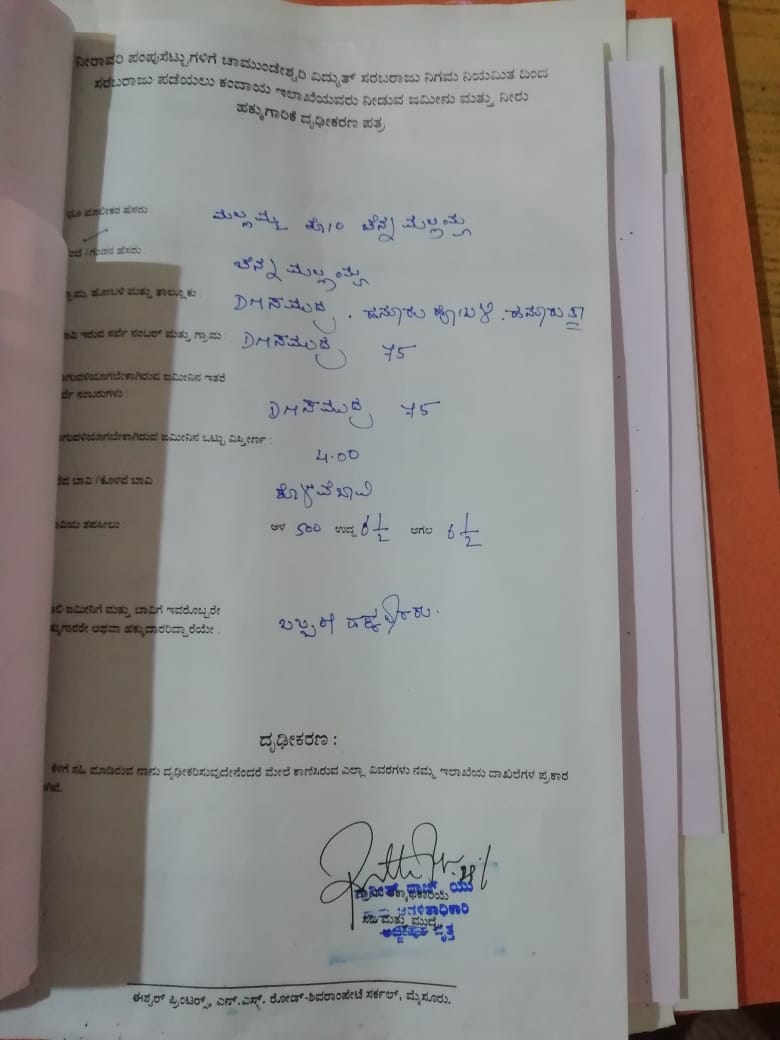 ನೀರಾವರಿ ಪಂಪುಸೆಟ್ಟುಗಳಿಗೆ ಚಾಮುಂಡೇಶ್ವರಿ ವಿದ್ಯುತ್ ಸರಬರಾಜು ನಿಗಮ ನಿಯಮಿತ ದಿಂದ
ಸರಬರಾಜು ಪಡೆಯಲು ಕಂದಾಯ ಇಲಾಖೆಯವರು ನೀಡುವ ಜಮೀನು ಮತ್ತು ನೀರು
ಹಕ್ಕುಗಾರಿಕೆ ದೃಢೀಕರಣ ಪತ್ರ
ಮಾಲೀಕರ ಹೆಸರು ಮಲ್ಲಮ್ಮ ಕೋಂ ಚೆನ್ನಮಲ್ಲಯ್ಯ
/ಗಂಡನ ಹೆಸರು : ಚೆನ್ನಮಲ್ಲಯ್ಯ
ಹೋಬಳಿ ಮತ್ತು ತಾಲ್ಲೂಕು : DMಸಮುದ್ರ . ಹನೂರು ಹೋಬಳಿ . ಹನೂರು ತಾ
ಇರುವ ಸರ್ವೆ ನಂಬರ್ ಮತ್ತು ಗ್ರಾಮ : DMಸಮುದ್ರ 75
ಜಮೀನಿನ ಇತರೆ
ನಂಬರುಗಳು : DMಸಮುದ್ರ 75
ಜಮೀನಿನ ಒಟ್ಟು ವಿಸ್ತೀರ್ಣ : 4.00
ಬಾವಿ / ಕೊಳವೆ ಬಾವಿ : ಕೊಳವೆಬಾವಿ
ತಪಸೀಲು : ಆಳ 500 ಉದ್ದ 6 1/2 ಅಗಲ 6 1/2
ಜಮೀನಿಗೆ ಮತ್ತು ಬಾವಿಗೆ ಇವರೊಬ್ಬರೇ
ಅಥವಾ ಹಕ್ಕುದಾರರಿದ್ದಾರೆಯೇ :
ದೃಢೀಕರಣ :
ಕೆಳಗೆ ಸಹಿ ಮಾಡಿರುವ ನಾನು ದೃಢೀಕರಿಸುವುದೇನೆಂದರೆ ಮೇಲೆ ಕಾಣಿಸಿರುವ ಎಲ್ಲಾ ವಿವರಗಳು ನಮ್ಮ ಇಲಾಖೆಯ ದಾಖಲೆಗಳ ಪ್ರಕಾರ
ಸಹಿ ಮತ್ತು ಮುದ್ರೆ
ಈಶ್ವರ್ ಪ್ರಿಂಟರ್ಸ್, ಎನ್.ಎಸ್. ರೋಡ್-ಶಿವರಾಂಪೇಟೆ ಸರ್ಕಲ್, ಮೈಸೂರು.